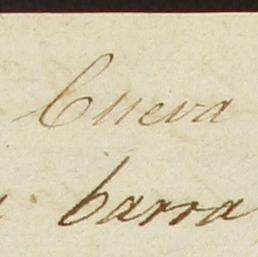 Cueva
barra